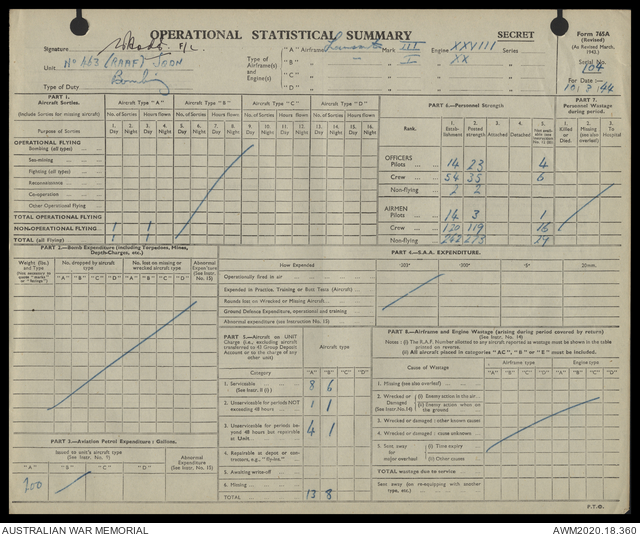 OPERATIONAL STATISTICAL SUMMARY
SECRET
Form 765A
(Revised)
(As Revised March, 1943.)
Signature F/L.
Unit No 463 (RAAF) SQDN
Type of Duty Bombing
Type of Airframe(s) and Engine(s)
"A" Airframe Lancaster Mark III Engine XXVIII Series
"B" " I " XX "
"C" "
"D" "
Serial No. 104
For Date :—
PART 1.
Aircraft Sorties.
(Include Sorties for missing aircraft)
Aircraft Type "A" Aircraft Type "B" Aircraft Type "C" Aircraft Type "D"
No. of Sorties Hours flown No. of Sorties Hours flown No. of Sorties Hours flown No. of Sorties Hours flown
Purpose of Sorties
1. Day 2. Night 3. Day 4. Night 5. Day 6. Night 7. Day 8. Night 9. Day 10. Night 11. Day 12. Night 13. Day 14. Night 15. Day 16. Night
OPERATIONAL FLYING
Bombing (all types)
Sea-mining
Fighting (all types)
Reconnaissance
Co-operation
Other Operational Flying
TOTAL OPERATIONAL FLYING
NON-OPERATIONAL FLYING 1 1
TOTAL (all Flying) 1 1
PART 6.—Personnel Strength
PART 7.—Personnel Wastage during period.
Rank. 1. Establishment 2. Posted strength 3. Attached 4. Detached 5.
1. Killed or Died. 2. Missing (see also overleaf) 3. To Hospital
OFFICERS
Pilots 14 23 4
Crew 54 35 6
Non-flying 2 2
AIRMEN
Pilots 14 3 1
Crew 120 119 16
Non-flying
PART 2.—Bomb Expenditure (including Torpedoes, Mines, Depth-Charges, etc.)
Weight (lbs.) and Type
No. dropped by aircraft type
No. lost on missing or wrecked aircraft type
Abnormal Expen'sure (See Instr. No. 15)
"A" "B" "C" "D" "A" "B" "C" "D"
PART 4.—S.A.A. EXPENDITURE.
How Expended ·303" ·500" ·5" 20mm.
Operationally fired in air
Expended in Practice, Training or Butt Tests (Aircraft)
Rounds lost on Wrecked or Missing Aircraft
Ground Defence Expenditure, operational and training
Abnormal expenditure (see Instruction No. 15)
PART 5.—Aircraft on UNIT Charge (i.e., excluding aircraft transferred to 43 Group Deposit Account or to the charge of any other unit)
Aircraft type
Category "A" "B" "C" "D"
1. Serviceable (See Instr. 11 (i) ) 8 6
2. Unserviceable for periods NOT exceeding 48 hours 1 1
3. Unserviceable for periods beyond 48 hours but repairable at Unit. 4 1
4. Repairable at depot or contractors, e.g., "Cy-int."
5. Awaiting write-off
6. Missing
TOTAL 13 8
PART 8.—Airframe and Engine Wastage (arising during period covered by return)
(See Instr. No. 14)
Notes : (i) The R.A.F. Number allotted to any aircraft reported as wastage must be shown in the table printed on reverse.
(ii) All aircraft placed in categories "AC", "B" or "E" must be included.
Cause of Wastage Airframe type Engine type
"A" "B" "C" "D" "A" "B" "C" "D"
1. Missing (see also overleaf)
2. Wrecked or Damaged (See Instr. No.14) (i) Enemy action in the air
(ii) Enemy action when on the ground
3. Wrecked or damaged : other known causes
4. Wrecked or damaged : cause unknown
5. Sent away for major overhaul (i) Time expiry
(ii) Other causes
TOTAL wastage due to service
Sent away (on re-equipping with another type, etc.)
PART 3.—Aviation Petrol Expenditure : Gallons.
Issued to unit's aircraft type (See Instr. No. 9)
Abnormal Expenditure (See Instr. No. 15)
"A" "B" "C" "D"
700
P.T.O.
AUSTRALIAN WAR MEMORIAL
AWM2020.18.360